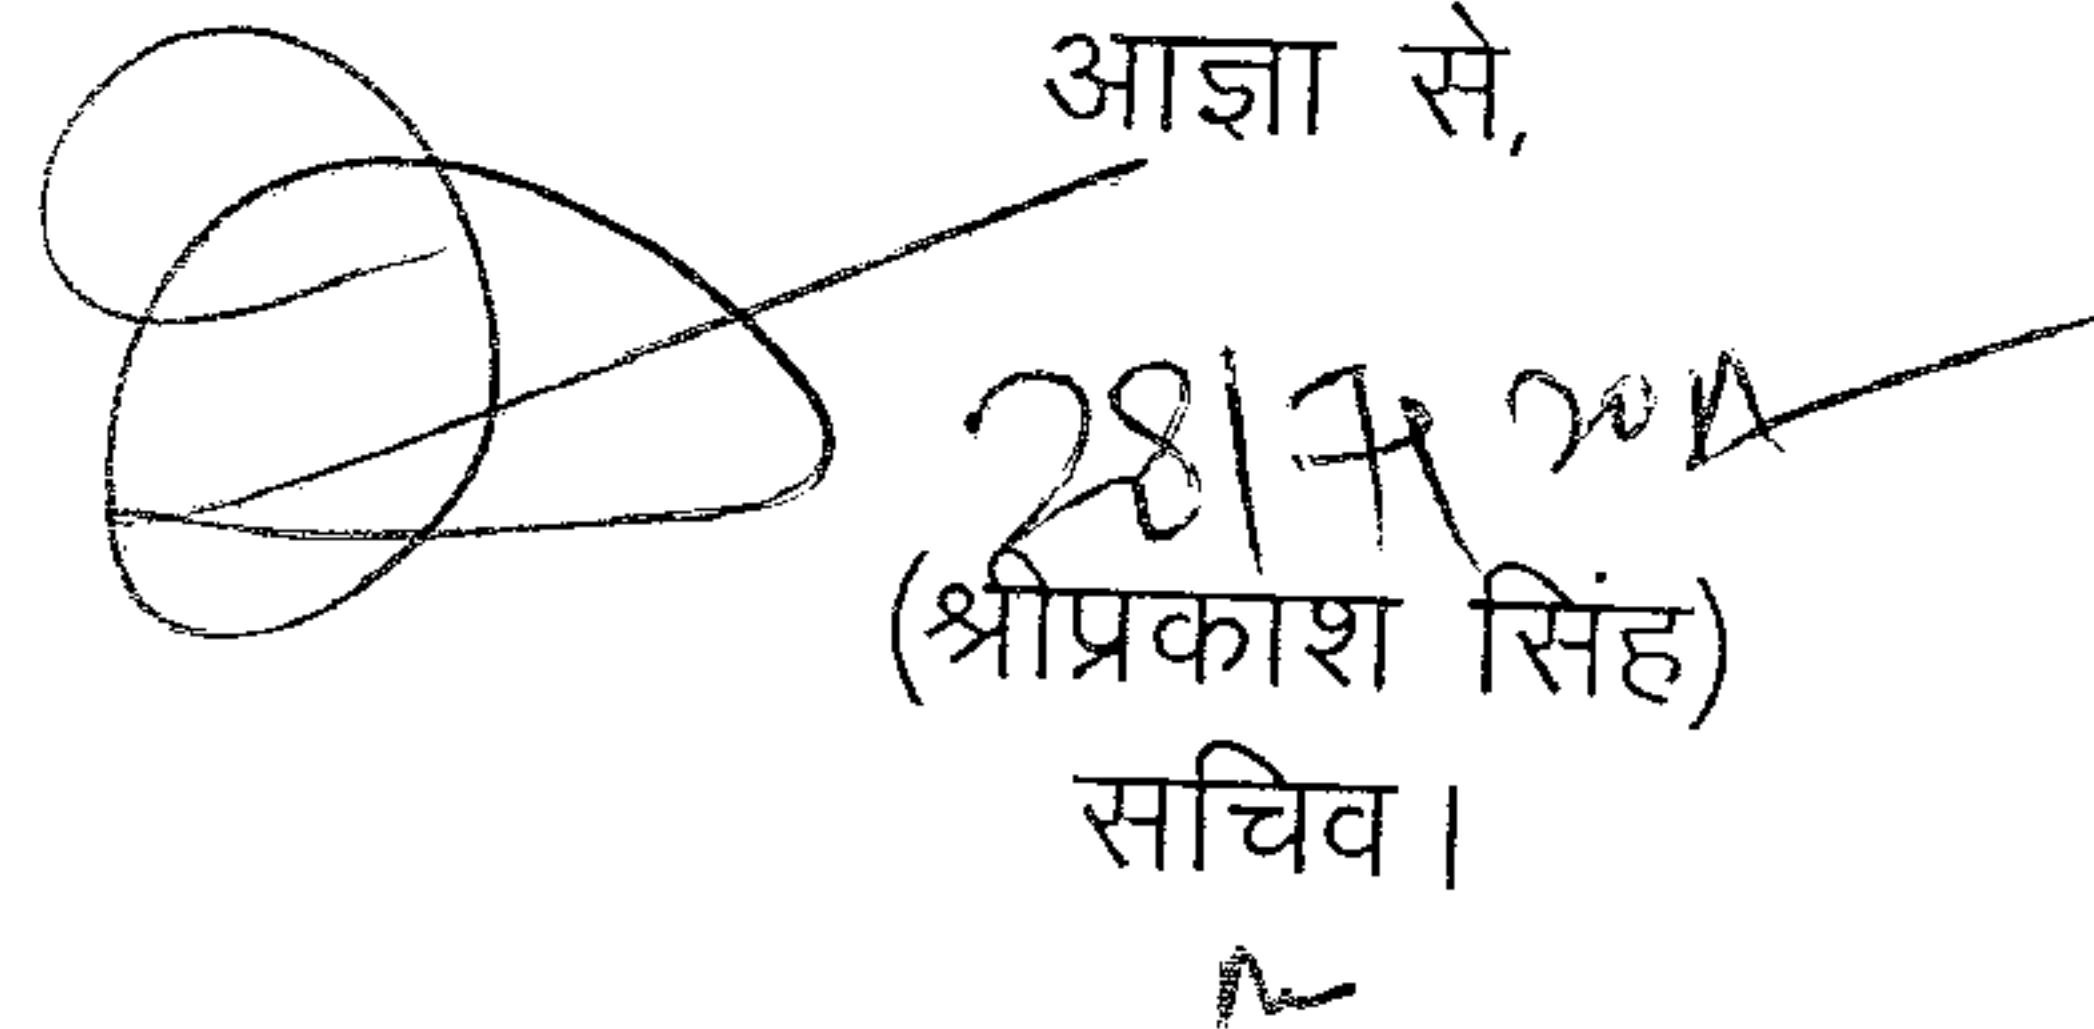 आज्ञा से,
28|7
(श्रीप्रकाश सिंह)
सचिव।